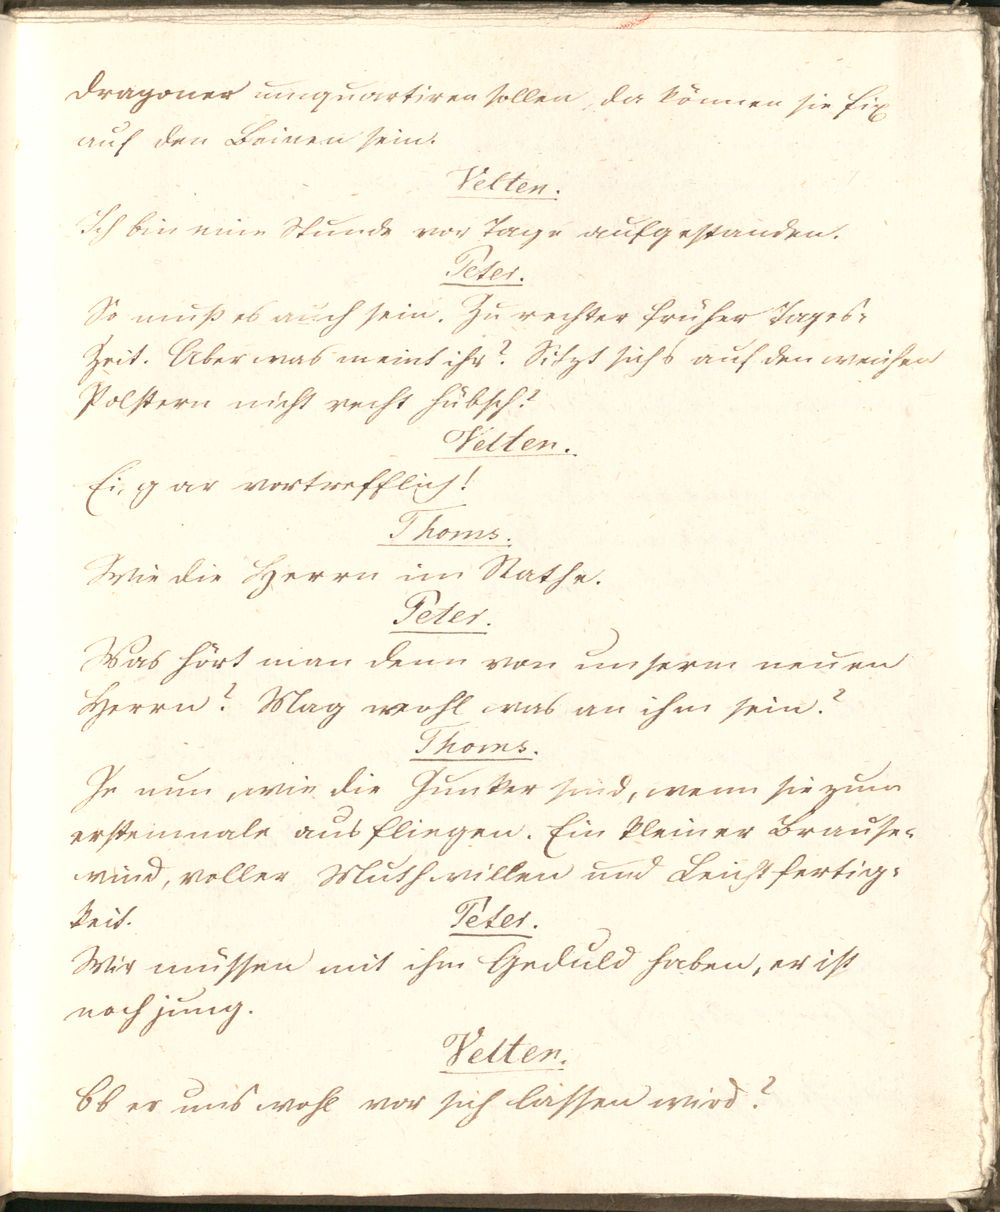 Dragoner umquartiren sollen, da können sie fix
auf den Beinen sein.
Velten.
Ich bin eine Stunde vor Tage aufgestanden.
Peter.
So muß es auch sein. Zu rechter früher Tages-
Zeit. Aber was meint ihr? Sitzt sichs auf den weichen
Polstern nicht recht hübsch?
Velten.
Ei, gar vortrefflich!
Thoms.
Wie die Herrn im Rathe.
Peter.
Was hört man denn von unserm neuen
Herrn? Mag wohl was an ihm sein?
Thoms.
Je nun, wie die Junker sind, wenn sie zum
erstenmale ausfliegen. Ein kleiner Brause-
wind, voller Muthwillen und Leichtfertig-
keit.
Peter.
Wir müssen mit ihm Geduld haben, er ist
noch jung.
Velten.
Ob er uns wohl vor sich lassen wird?